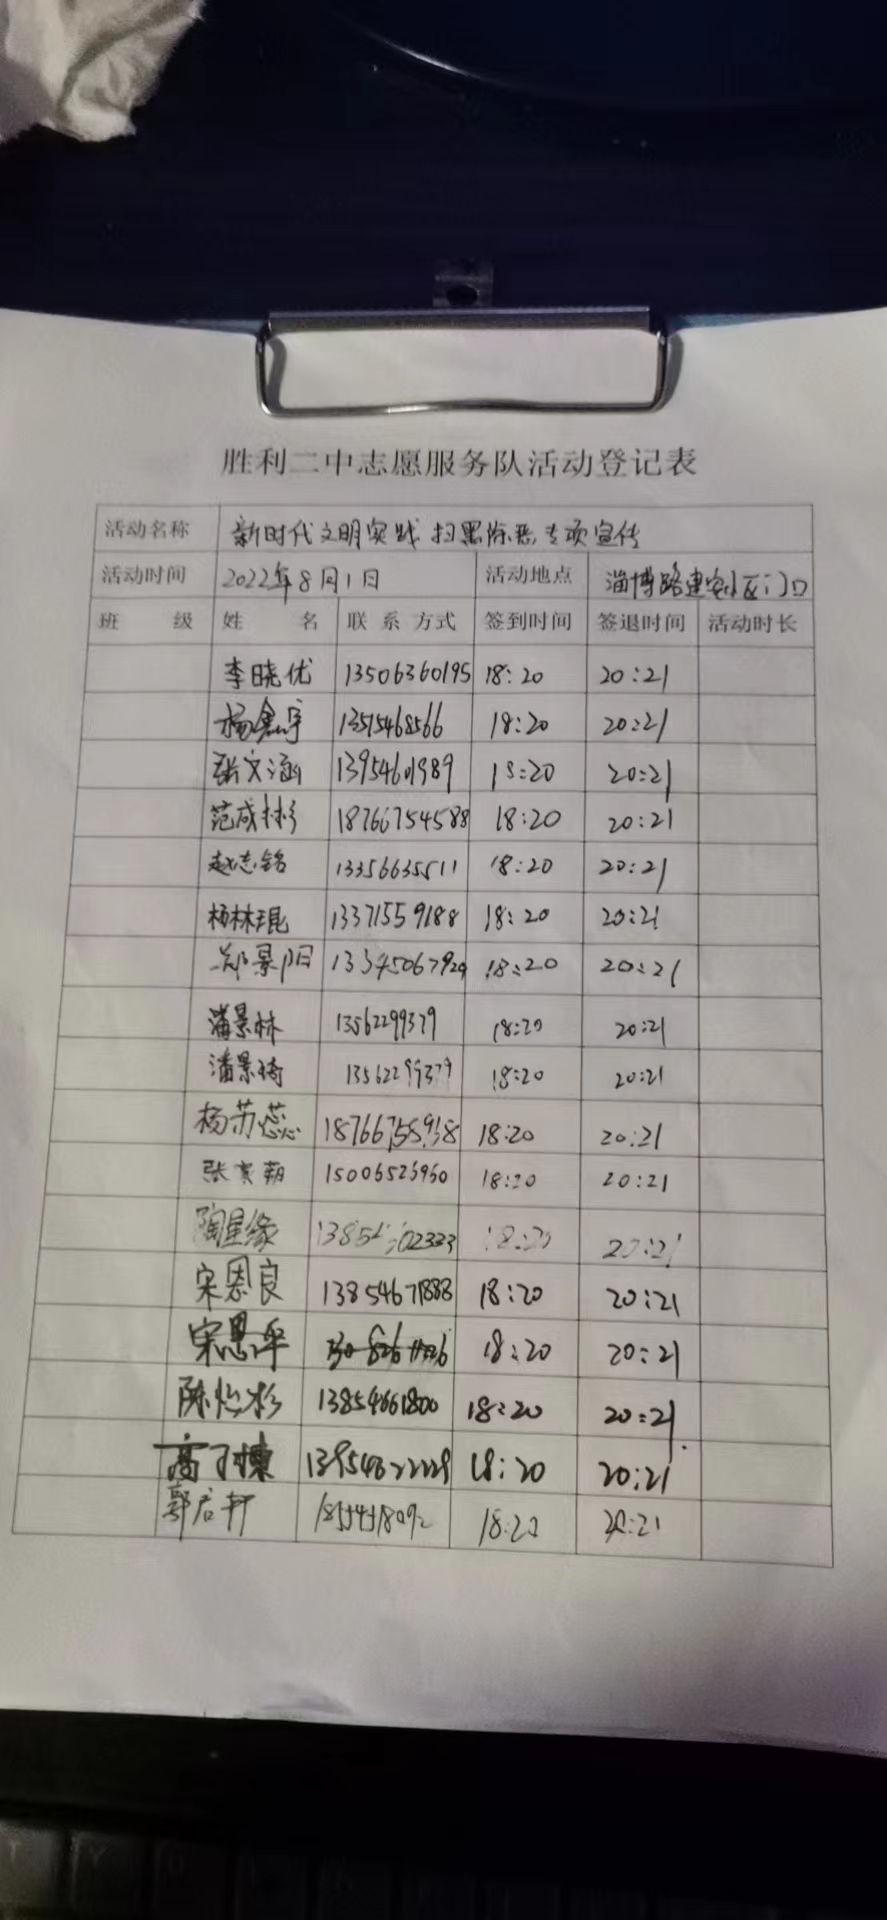 胜利二中志愿服务队活动登记表
活动名称 新时代文明实践 扫黑除恶专项宣传
活动时间 2022年8月1日 活动地点 淄博路建安小区门口
班 级 姓 名 联系方式 签到时间 签退时间 活动时长
李晓优 13506360195 18:20 20:21
杨鑫宇 13515468566 18:20 20:21
张文涵 13954601989 18:20 20:21
范成彬 18766754588 18:20 20:21
赵志铭 13356635511 18:20 20:21
杨林琨 13371559188 18:20 20:21
郑景阳 13345067929 18:20 20:21
潘景林 13562299379 18:20 20:21
潘景琦 13562299379 18:20 20:21
杨苏蕊 18766755938 18:20 20:21
张 朝 15006526960 18:20 20:21
陶星缘 18:20 20:21
宋恩良 13854671888 18:20 20:21
宋恩泽 18:20 20:21
陈怡杉 13854661800 18:20 20:21
高子 18:20 20:21
郭启轩 18:20 20:21